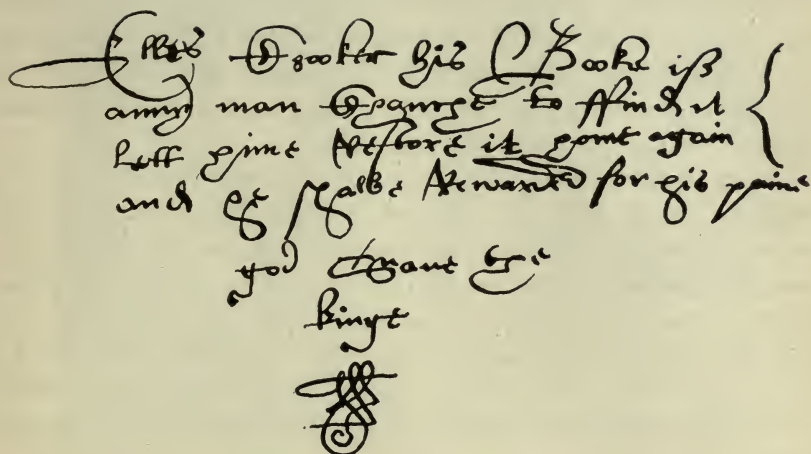 Crooker his Booke iff
anny man Chaunce to ffind it
lett hime Restore it home again
and he shalbe Rewarded for his paine
god save the
kinge